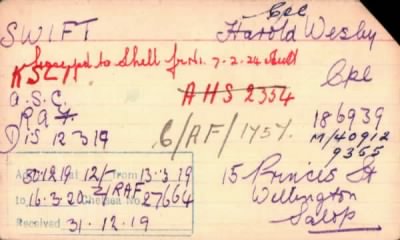 Cpl
SWIFT Harold Wesley
to Shell fr No. 7-2-24
KSLI Cpl
A.S.C. AHS 2354
RAF 186939
Dis 12 3 19 6/AF/1757. M/40912
9365
30.12.19 12/- from 13.3.19 15 Princes St
to 16.3.20 RAF Chelsea No. 27664 Wellington
Salop
Received 31.12.19